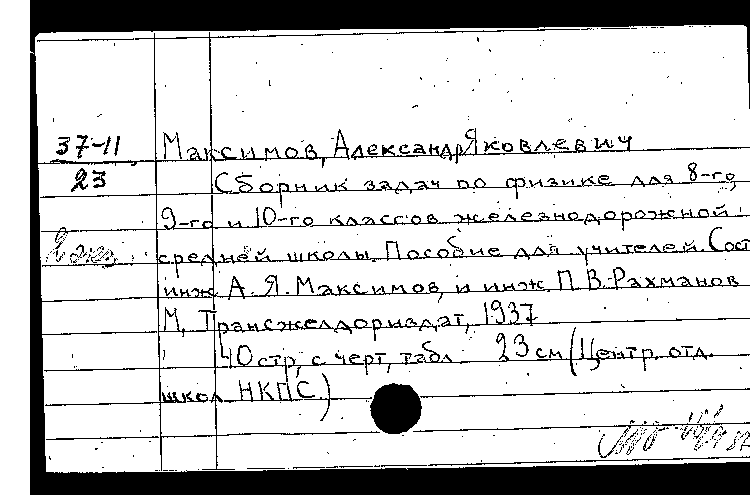 37-11
23
2 экз.
Максимов, Александр Яковлевич
Сборник задач по физике для 8-го,
9-го и 10-го классов железнодорожной
средней школы. Пособие для учителей. Сост
инж А. Я. Максимов, и инж. П. В. Рахманов
М, Трансжелдориздат, 1937
40 стр, с черт, табл. 23 см (Центр. отд.
школ НКПС)